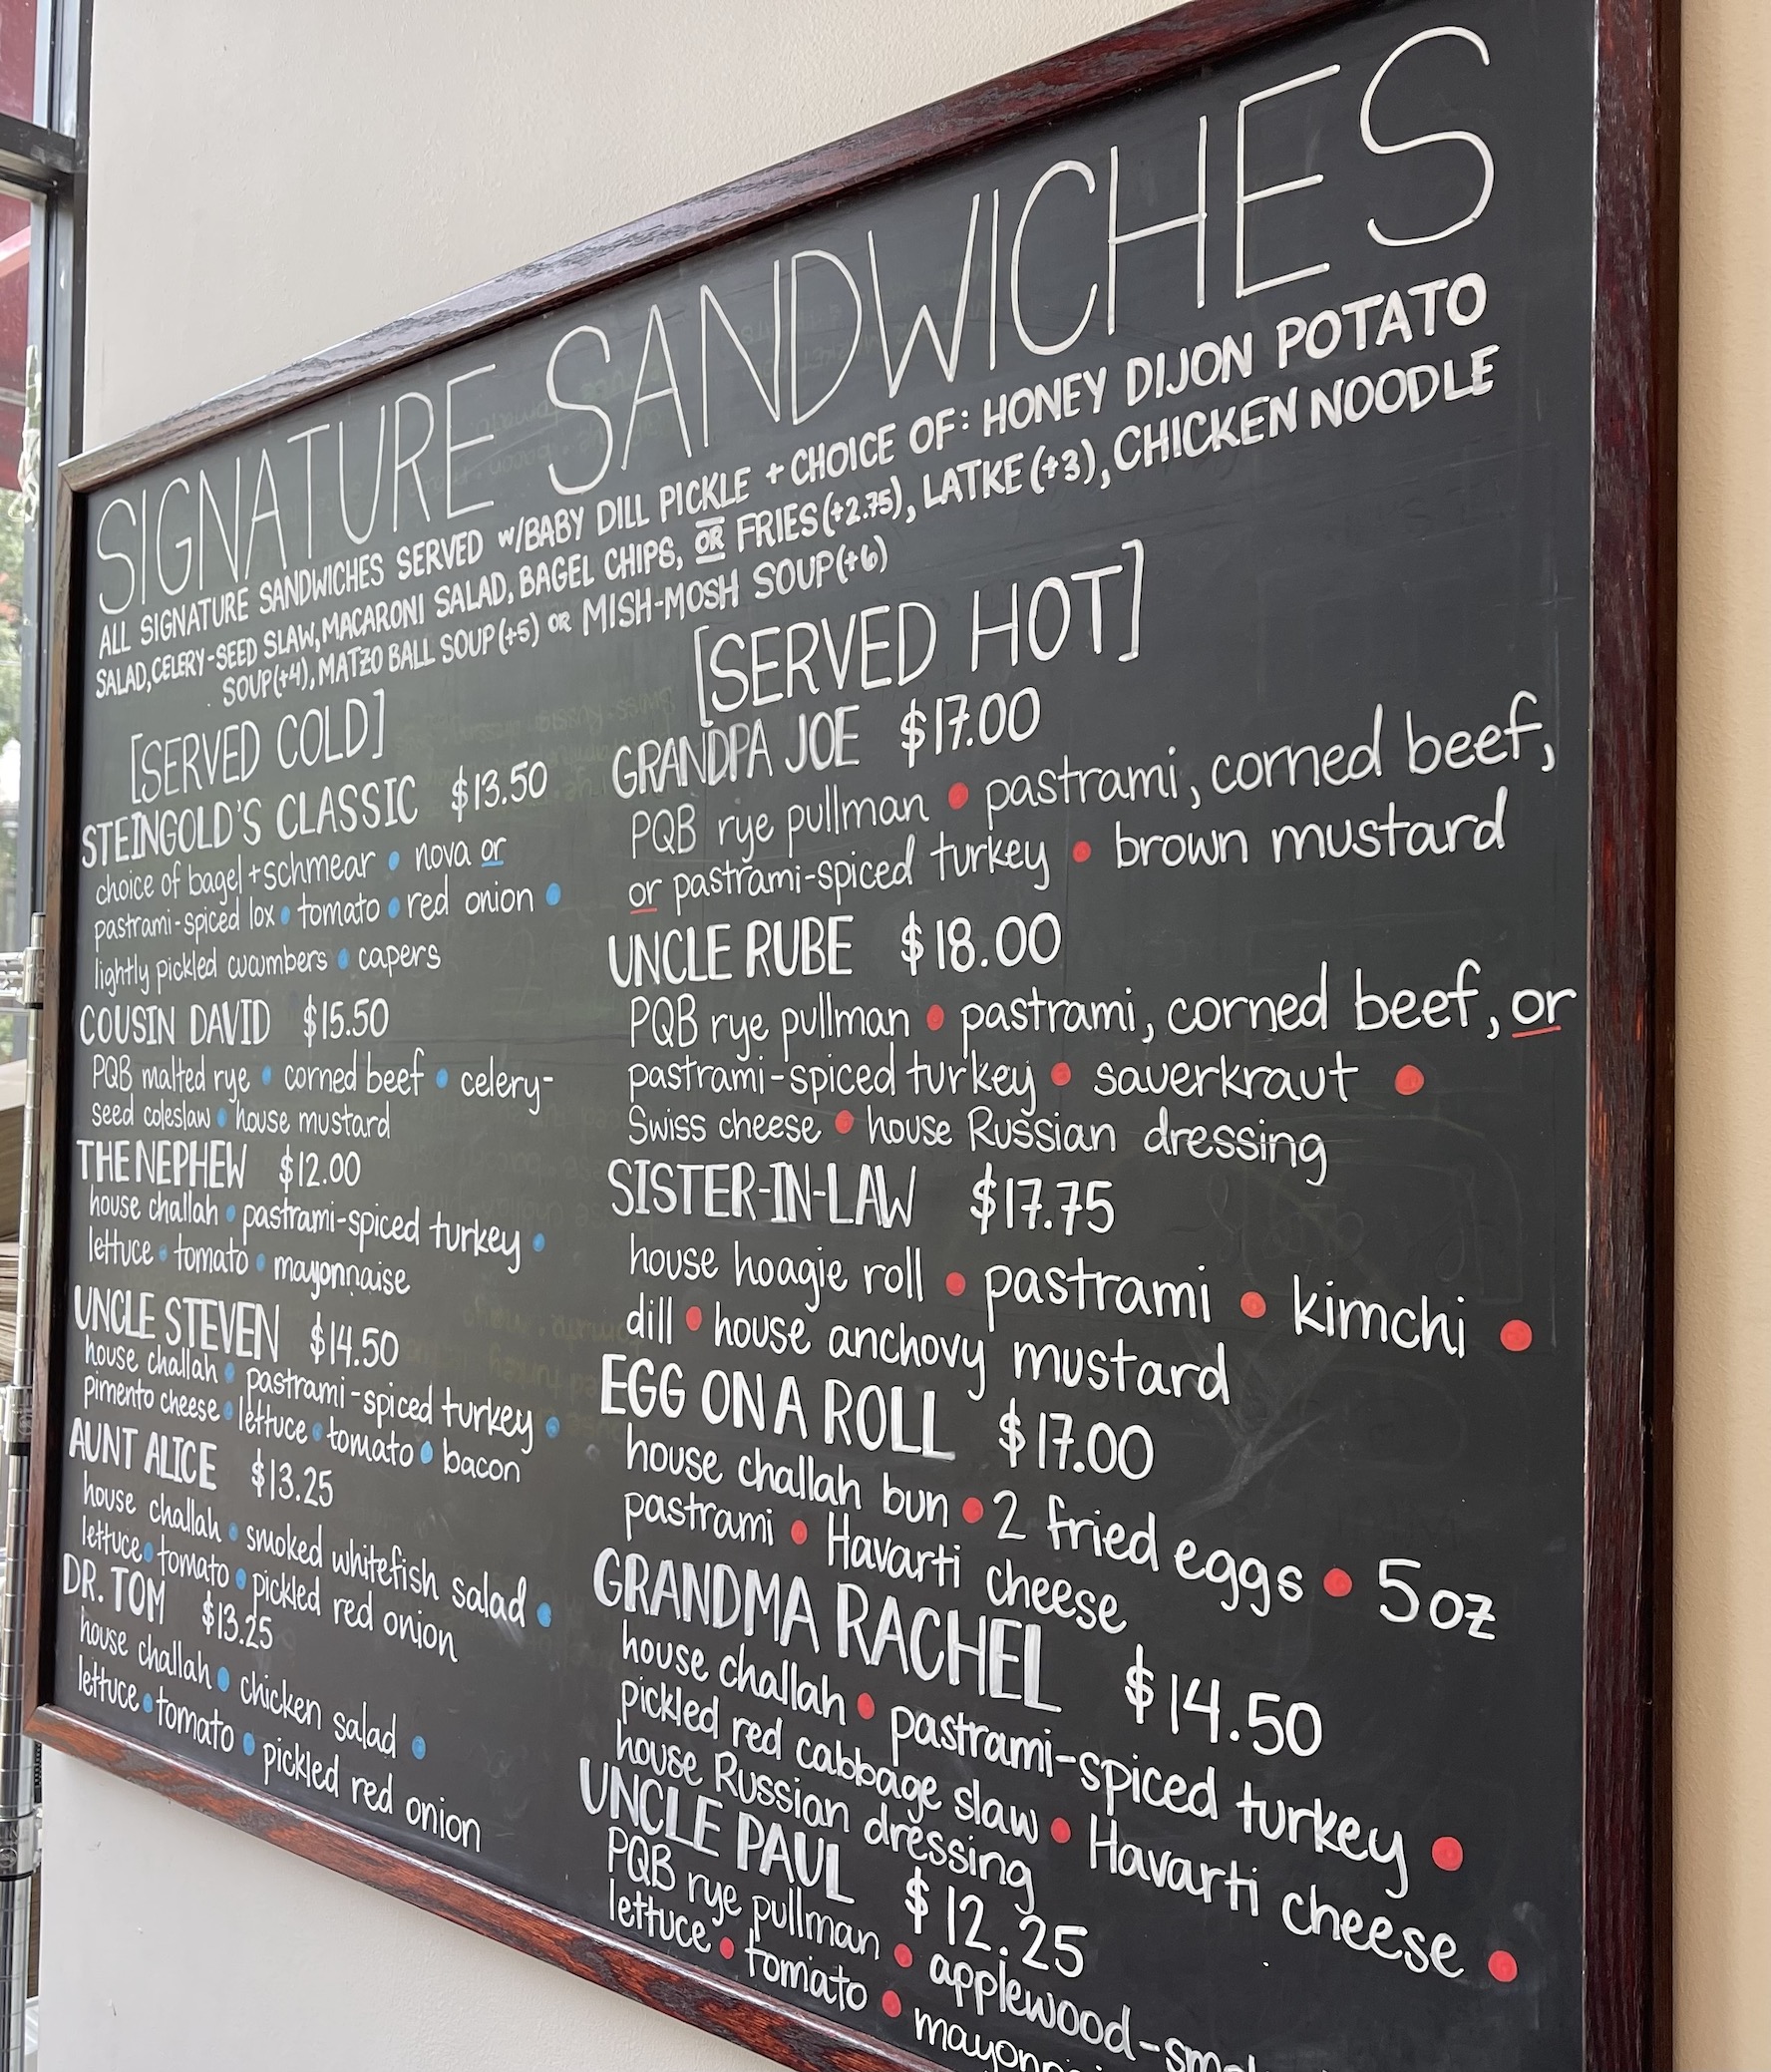 SIGNATURE SANDWICHES
ALL SIGNATURE SANDWICHES SERVED w/BABY DILL PICKLE + CHOICE OF: HONEY DIJON POTATO
SALAD, CELERY-SEED SLAW, MACARONI SALAD, BAGEL CHIPS, OR FRIES (+2.75), LATKE (+3), CHICKEN NOODLE
SOUP (+4), MATZO BALL SOUP (+5) OR MISH-MOSH SOUP (+6)
[SERVED COLD]
STEINGOLD'S CLASSIC $13.50
choice of bagel + schmear • nova or
pastrami-spiced lox • tomato • red onion •
lightly pickled cucumbers • capers
COUSIN DAVID $15.50
PQB malted rye • corned beef • celery-
seed coleslaw • house mustard
THE NEPHEW $12.00
house challah • pastrami-spiced turkey •
lettuce • tomato • mayonnaise
UNCLE STEVEN $14.50
house challah • pastrami-spiced turkey •
pimento cheese • lettuce • tomato • bacon
AUNT ALICE $13.25
house challah • smoked whitefish salad •
lettuce • tomato • pickled red onion
DR. TOM $13.25
house challah • chicken salad •
lettuce • tomato • pickled red onion
[SERVED HOT]
GRANDPA JOE $17.00
PQB rye pullman • pastrami, corned beef,
or pastrami-spiced turkey • brown mustard
UNCLE RUBE $18.00
PQB rye pullman • pastrami, corned beef, or
pastrami-spiced turkey • sauerkraut •
Swiss cheese • house Russian dressing
SISTER-IN-LAW $17.75
house hoagie roll • pastrami • kimchi •
dill • house anchovy mustard
EGG ON A ROLL $17.00
house challah bun • 2 fried eggs • 5oz
pastrami • Havarti cheese
GRANDMA RACHEL $14.50
house challah • pastrami-spiced turkey •
pickled red cabbage slaw • Havarti cheese •
house Russian dressing
UNCLE PAUL $12.25
PQB rye pullman • applewood-
lettuce • tomato •